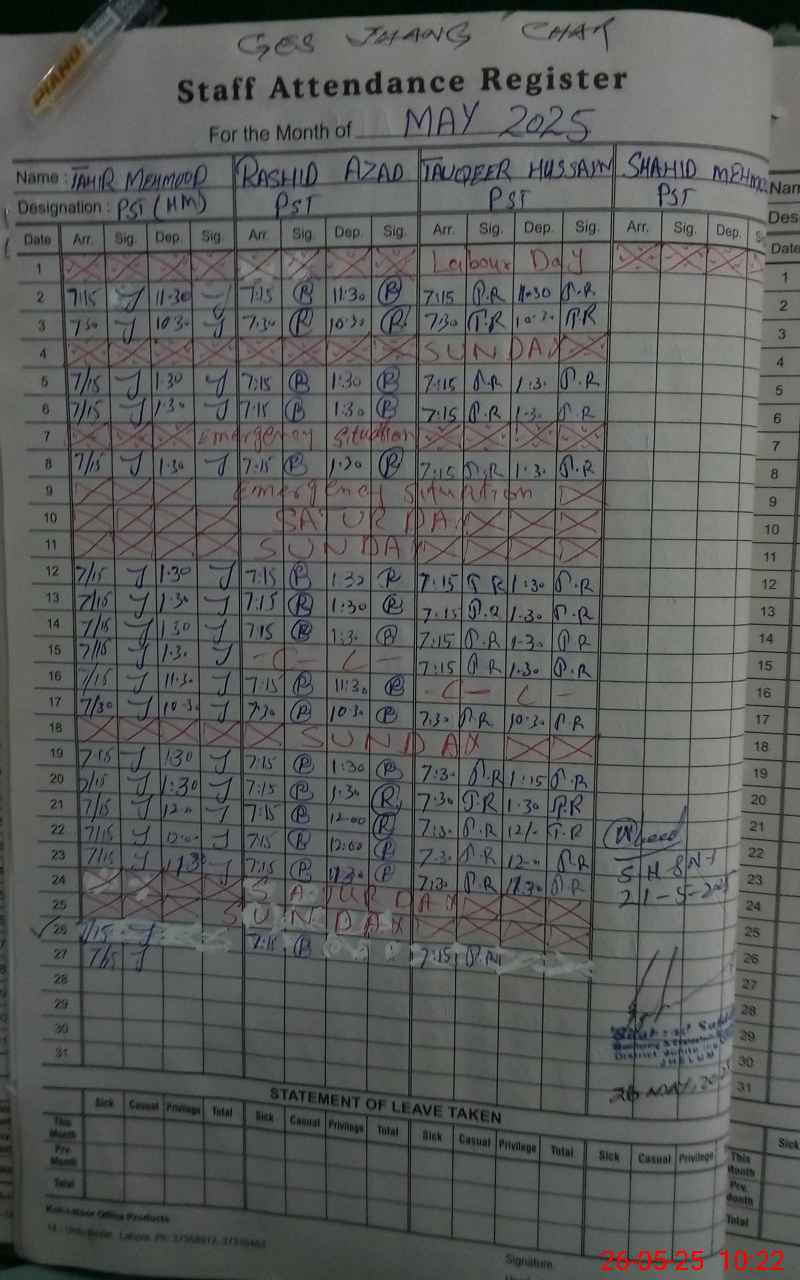 PIANO
GES JHANG CHAK
Staff Attendance Register
For the Month of MAY 2025
Name : TAHIR MEHMOOD RASHID AZAD TAUQEER HUSSAIN SHAHID MEHMO
Designation : PST (HM) PST PST PST
Date Arr. Sig. Dep. Sig. Arr. Sig. Dep. Sig. Arr. Sig. Dep. Sig. Arr. Sig. Dep.
1 Labour Day
2 7:15 11:30 7:15 R 11:30 R 7:15 T.R 11:30 T.R
3 7:30 10:30 7:30 R 10:30 R 7:30 T.R 10:30 T.R
4 SUNDAY
5 7/15 1:30 7:15 R 1:30 R 7:15 T.R 1:30 T.R
6 7/15 1:30 7:15 R 1:30 R 7:15 T.R 1:30 T.R
7 Emergency Situation
8 7/15 1:30 7:15 R 1:30 R 7:15 T.R 1:30 T.R
9 Emergency Situation
10 SATURDAY
11 SUNDAY
12 7/15 1:30 7:15 R 1:30 R 7:15 T.R 1:30 T.R
13 7/15 1:30 7:15 R 1:30 R 7:15 T.R 1:30 T.R
14 7/15 1:30 7:15 R 1:30 R 7:15 T.R 1:30 T.R
15 7/15 1:30 - C - L - 7:15 T.R 1:30 T.R
16 7/15 11:30 7:15 R 11:30 R - C - L -
17 7/30 10:30 7:30 R 10:30 R 7:30 T.R 10:30 T.R
18 SUNDAY
19 7:15 1:30 7:15 R 1:30 R 7:30 T.R 1:15 T.R
20 7/15 1:30 7:15 R 1:30 R 7:30 T.R 1:30 T.R
21 7/15 12:00 7:15 R 12:00 R 7:30 T.R 12/- T.R
22 7/15 12:00 7:15 R 12:00 R 7:30 T.R 12:00 T.R
23 7/15 11:30 7:15 R 11:30 R 7:30 T.R 11:30 T.R
21-5-2025
24 SATURDAY
25 SUNDAY
26 7/15 7:15 R 7:15 T.R
27 7/15
28
29
30
31
JHELUM
26 MAY, 2025
STATEMENT OF LEAVE TAKEN
Sick Casual Privilege Total Sick Casual Privilege Total Sick Casual Privilege Total Sick Casual Privilege
This Month
Pre. Month
Total
Office Products
Lahore.
Signature
Date
1
2
3
4
5
6
7
8
9
10
11
12
13
14
15
16
17
18
19
20
21
22
23
24
25
26
27
28
29
30
31
Sick
This Month
Pre. Month
Total
26-05-25 10:22